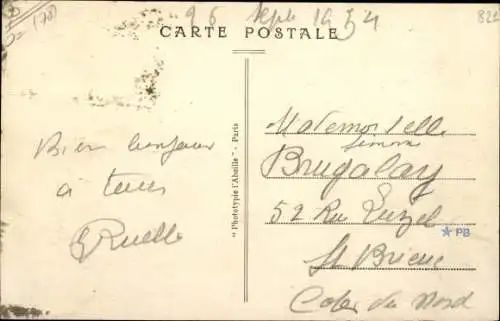 26 Sept 1934
CARTE POSTALE
Bien bonjour
à tous
Ruelle
"Phototypie l'Abeille" - Paris
Mademoiselle
Simone
Brugalay
52 Rue
St Brieuc
Cotes du Nord
PB